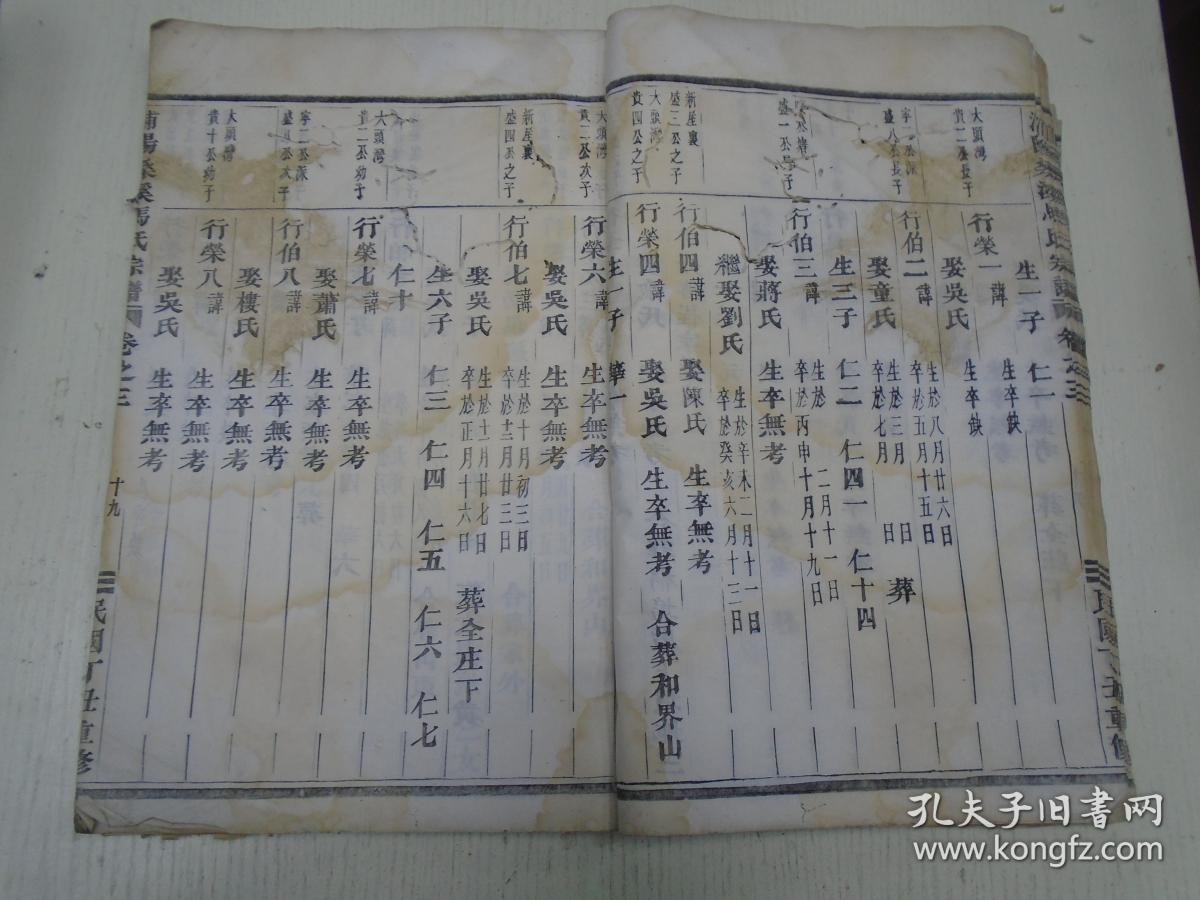 生一子 仁一
生卒缺
大頭灣
貴二公長子
行榮一諱
生卒缺
娶吳氏
寧二公派
盛八公長子
行伯二諱
生於八月廿六日
卒於五月十五日
娶童氏
生於三月 日
卒於七月 日
葬
生三子 仁二 仁四一 仁十四
盛一公長子
行伯三諱
生於 二月十一日
卒於丙申十月十九日
娶蔣氏 生卒無考
繼娶劉氏
生於辛未二月十一日
卒於癸亥六月十三日
新屋裏
盛三公之子
行伯四諱 娶陳氏 生卒無考
大頭灣
貴四公之子
行榮四諱 娶吳氏 生卒無考 合葬和界山
生一子 華一
大頭灣
貴二公次子
行榮六諱 生卒無考
娶吳氏 生卒無考
新屋裏
盛四公之子
行伯七諱
生於十月初三日
卒於十二月廿三日
娶吳氏
生於十一月廿七日
卒於正月十六日
葬全庄下
生六子 仁三 仁四 仁五 仁六 仁七
仁十
大頭灣
貴二公幼子
行榮七諱 生卒無考
娶蕭氏 生卒無考
寧二公派
盛八公次子
行伯八諱 生卒無考
娶樓氏 生卒無考
大頭灣
貴十公幼子
行榮八諱 生卒無考
娶吳氏 生卒無考
浦陽桑溪馬氏宗譜 卷之三
十九
民國丁丑重修
孔夫子旧书网
www.kongfz.com